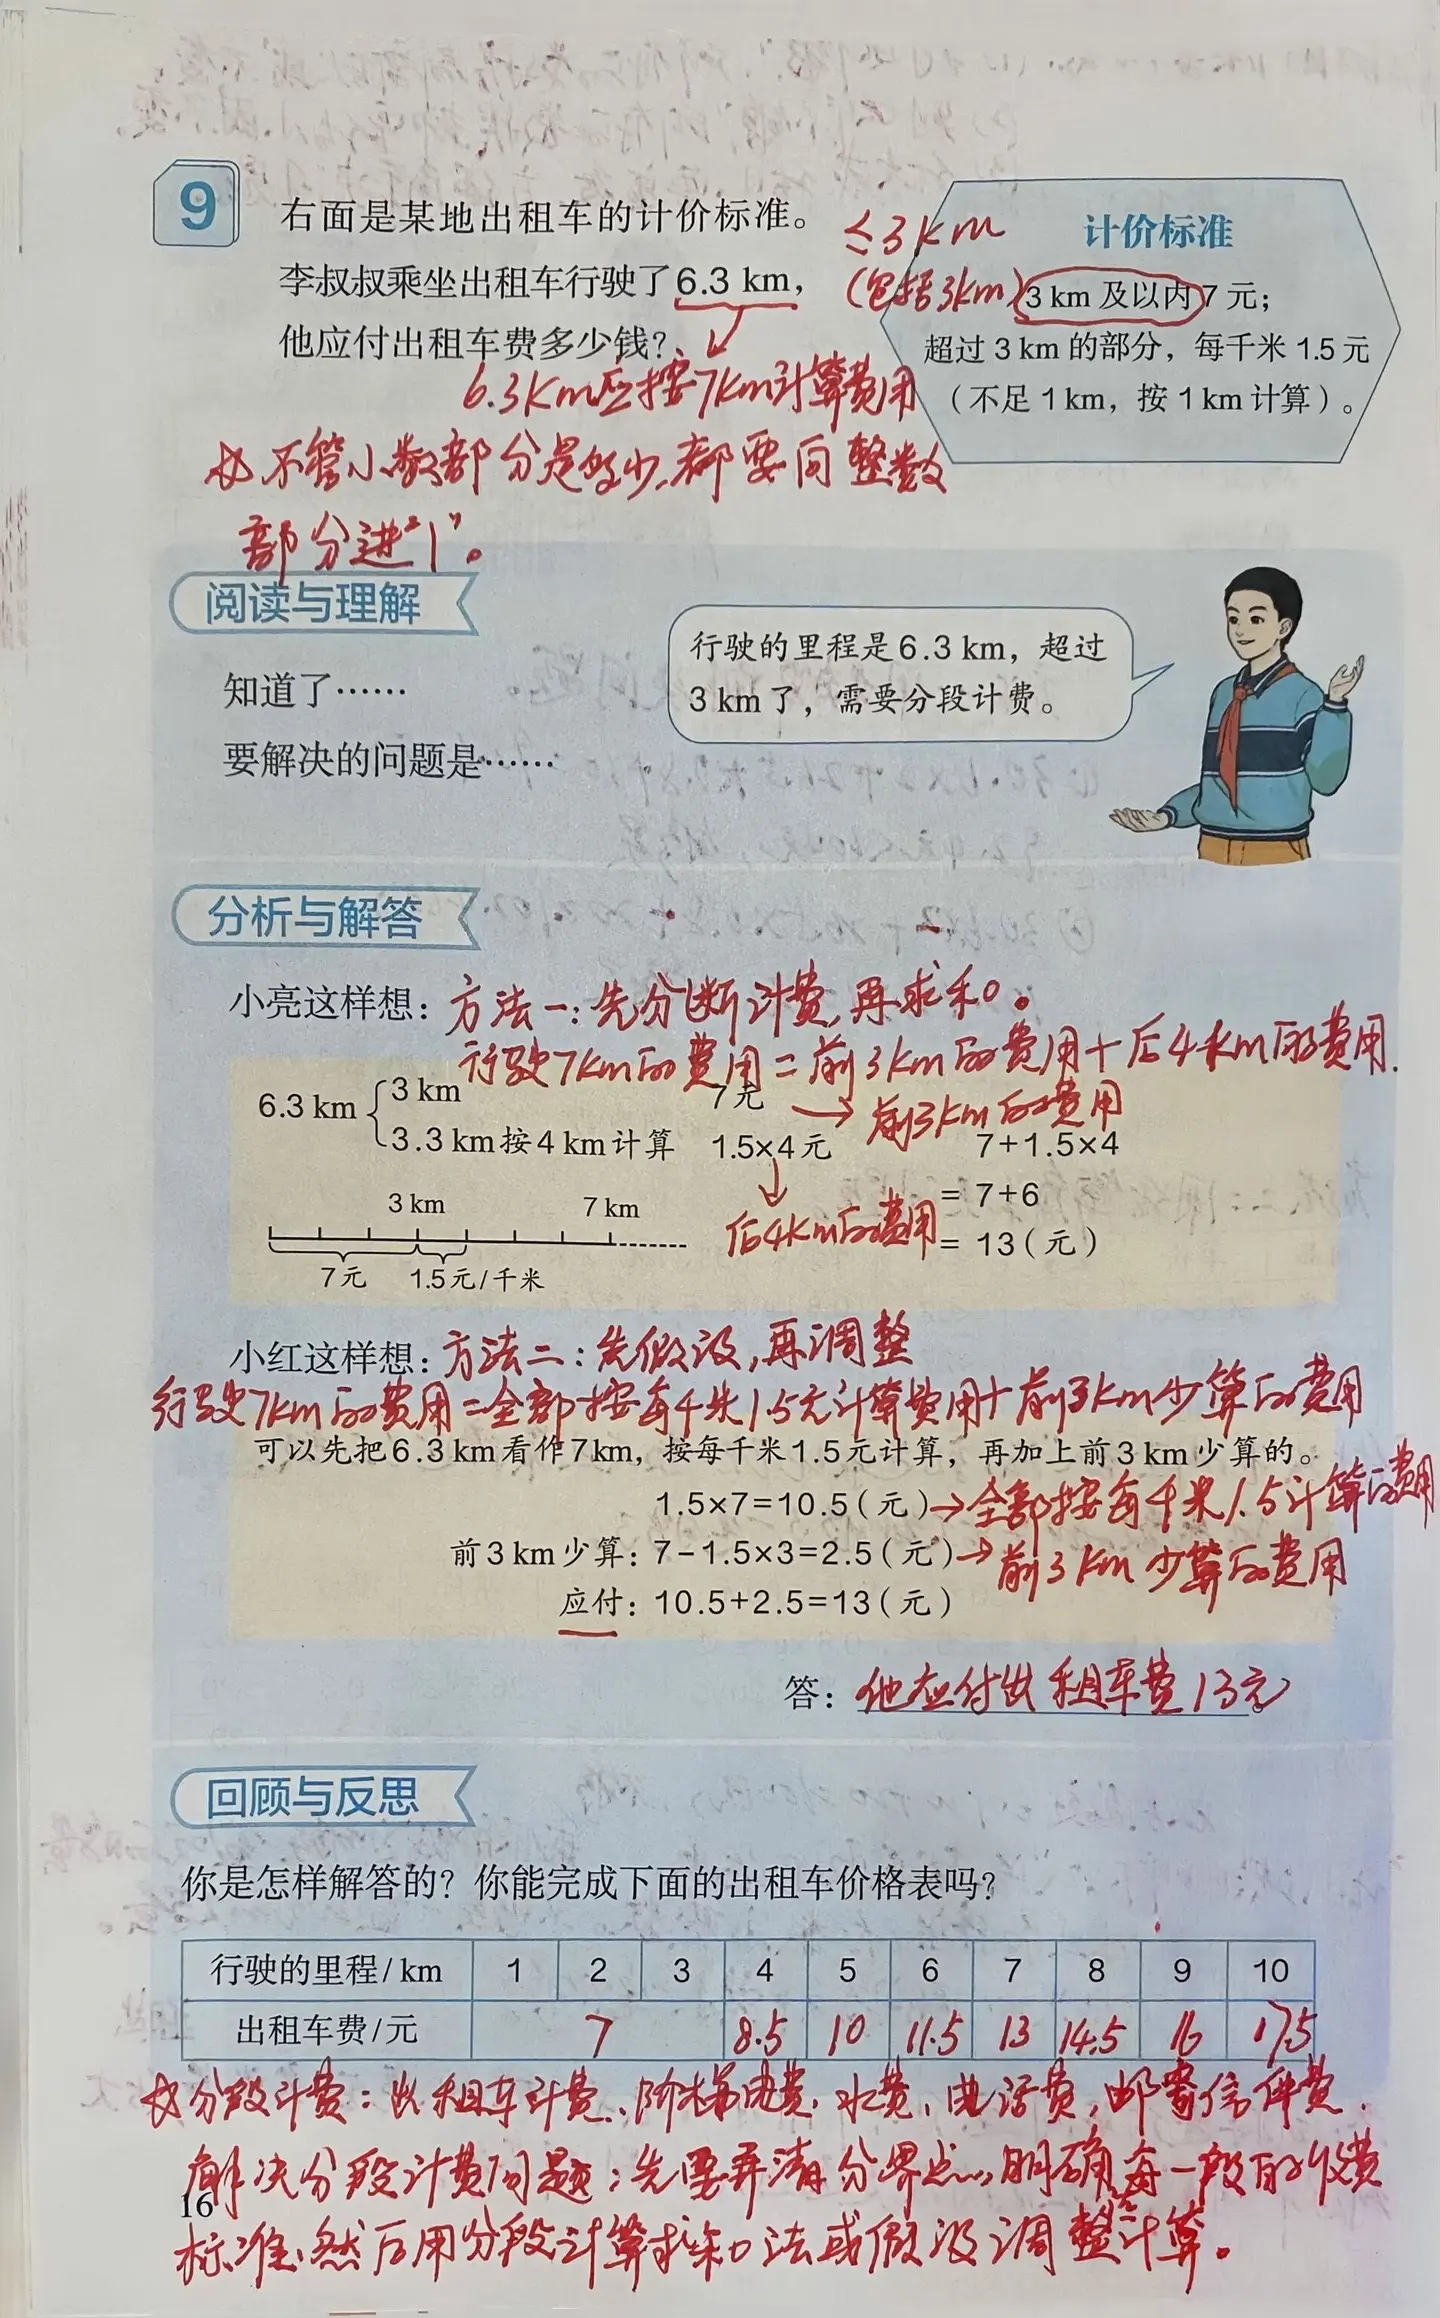 9
右面是某地出租车的计价标准。
李叔叔乘坐出租车行驶了6.3 km，
他应付出租车费多少钱？
≤3km
(包括3km)
计价标准
3 km 及以内 7 元；
超过 3 km 的部分，每千米 1.5 元
（不足 1 km，按 1 km 计算）。
6.3km应按7km计算费用
不管小数部分是多少,都要向整数
部分进"1"。
阅读与理解
知道了……
要解决的问题是……
行驶的里程是6.3 km，超过
3 km了，需要分段计费。
分析与解答
小亮这样想：方法一:先分段计费,再求和。
行驶7km的费用=前3km的费用+后4km的费用.
6.3 km
3 km
7元
→前3km的费用
3.3 km按4 km计算
1.5×4元
7+1.5×4
= 7+6
= 13（元）
后4km的费用
3 km
7 km
7元
1.5元/千米
小红这样想：方法二:先假设,再调整
行驶7km的费用=全部按每千米1.5元计算费用+前3km少算的费用
可以先把6.3 km看作7km，按每千米1.5元计算，再加上前3 km少算的。
1.5×7=10.5（元）→全部按每千米1.5计算的费用
前3 km少算：7-1.5×3=2.5（元）→前3km少算的费用
应付：10.5+2.5=13（元）
答：他应付出租车费13元。
回顾与反思
你是怎样解答的？你能完成下面的出租车价格表吗？
行驶的里程/km 1 2 3 4 5 6 7 8 9 10
出租车费/元 7 8.5 10 11.5 13 14.5 16 17.5
分段计费:出租车计费、阶梯电费、水费、电话费,邮寄信件费.
解决分段计费问题:先要弄清分界点,明确每一段的收费
标准,然后用分段计算求和法或假设调整法计算。
16